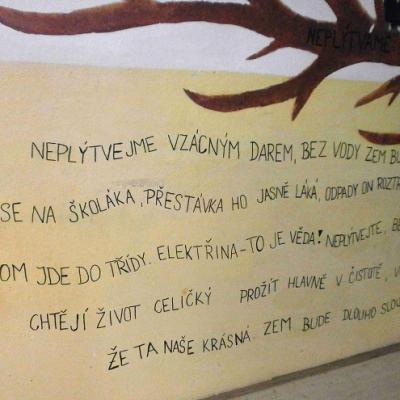 NEPLÝTVÁME
NEPLÝTVEJME VZÁCNÝM DAREM, BEZ VODY ZEM
SE NA ŠKOLÁKA, PŘESTÁVKA HO JASNĚ LÁKÁ, ODPADY ON
JDE DO TŘÍDY. ELEKTŘINA-TO JE VĚDA! NEPLÝTVEJTE,
CHTĚJÍ ŽIVOT CELIČKÝ PROŽÍT HLAVNĚ V ČISTOTĚ,
ŽE TA NAŠE KRÁSNÁ ZEM BUDE DLOUHO